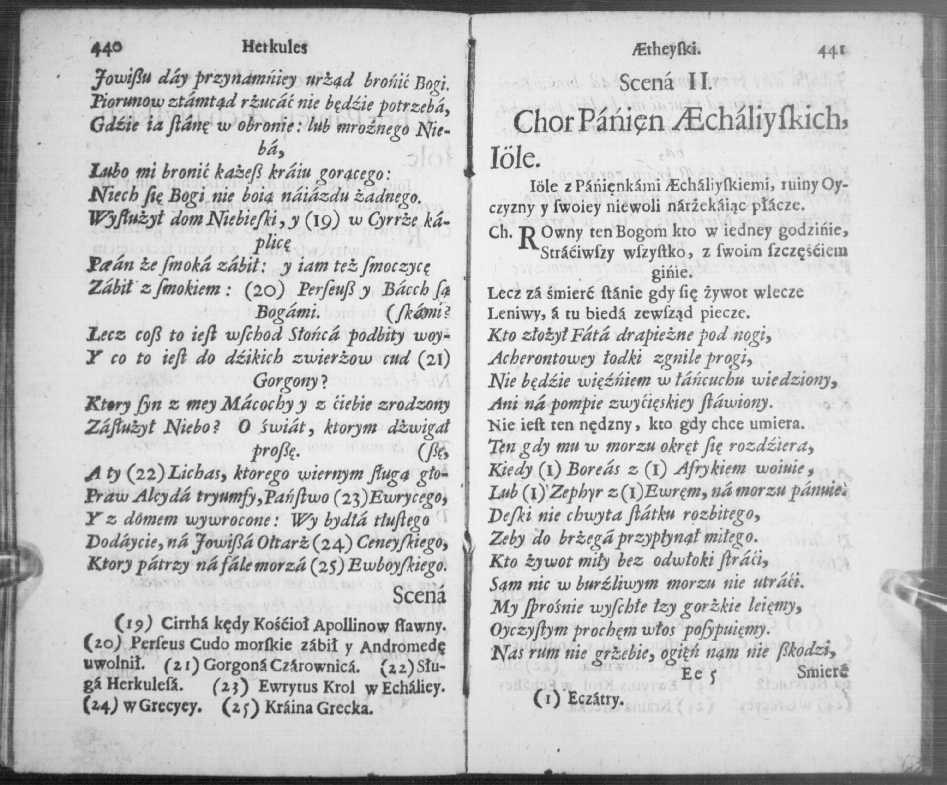 440 Herkules
Jowißu dáy przynamńiey urżąd brońić Bogi.
Piorunow ztámtąd rżucáć nie będźie potrzebá,
Gdźie ia ſtánę w obronie: lub mroźnego Nie-
bá,
Lubo mi bronić każeß kráiu gorącego:
Niech ſię Bogi nie boią náiázdu żadnego.
Wyſłużył dom Niebieſki, y (19) w Cyrrże ká-
plicę
Pæán że ſmoká zábił: y iam też ſmoczycę
Zábił z ſmokiem: (20) Perſeuß y Bácch ſą
Bogámi. (ſkámi?
Lecz coß to ieſt wſchod Słońcá podbity woy-
Y co to ieſt do dźikich zwierżow cud (21)
Gorgony?
Ktory ſyn z mey Mácochy y z ćiebie zrodzony
Záſłużył Niebo? O świát, ktorym dźwigał
proßę. (ßę,
A ty (22) Lichas, ktorego wiernym ſługą gło-
Praw Alcydá tryumfy, Páńſtwo (23) Ewrycego,
Y z domem wywrocone: Wy bydłá tłuſtego
Dodáycie, ná Jowißá Ołtarż (24) Ceneyſkiego,
Ktory pátrzy ná fále morzá (25) Ewboyſkiego.
Scená
(19) Cirrhá kędy Kośćioł Apollinow ſławny.
(20) Perſeus Cudo morſkie zábił y Andromedę
uwolnił. (21) Gorgoná Czárownicá. (22) Słu-
gá Herkuleſá. (23) Ewrytus Krol w Echáliey.
(24) w Grecyey. (25) Kráina Grecka.
Ætheyſki. 441
Scená II.
Chor Páńięn Æcháliyſkich,
Iöle.
Iöle z Páńięnkámi Æcháliyſkiemi, ruiny Oy-
czyzny y ſwoiey niewoli nárżekáiąc płácze.
Ch. ROwny ten Bogom kto w iedney godźińie,
Stráćiwſzy wſzyſtko, z ſwoim ſzczęśćiem
gińie.
Lecz zá śmierć ſtánie gdy ſię żywot wlecze
Leniwy, á tu biedá zewſząd piecze.
Kto złożył Fátá drapieżne pod nogi,
Acherontowey łodki zgniłe progi,
Nie będźie więźniem w łáńcuchu wiedziony,
Ani ná pompie zwyćięskiey ſtáwiony.
Nie ieſt ten nędzny, kto gdy chce umiera.
Ten gdy mu w morzu okręt ſię rozdźiera,
Kiedy (1) Boreás z (1) Afrykiem woiuie,
Lub (1) Zephyr z (1) Ewręm, ná morzu pánuie.
Deſki nie chwyta ſtátku rozbitego,
Zeby do brżegá przypłynął miłego.
Kto żywot miły bez odwłoki ſtráći,
Sąm nic w burźliwym morzu nie utráći.
My ſprośnie wyſchłe łzy gorżkie leięmy,
Oyczyſtym prochęm włos poſypuięmy.
Nas rum nie grżebie, ogięń nąm nie ßkodźi,
Ee 5 Smierć
(1) Eczátry.